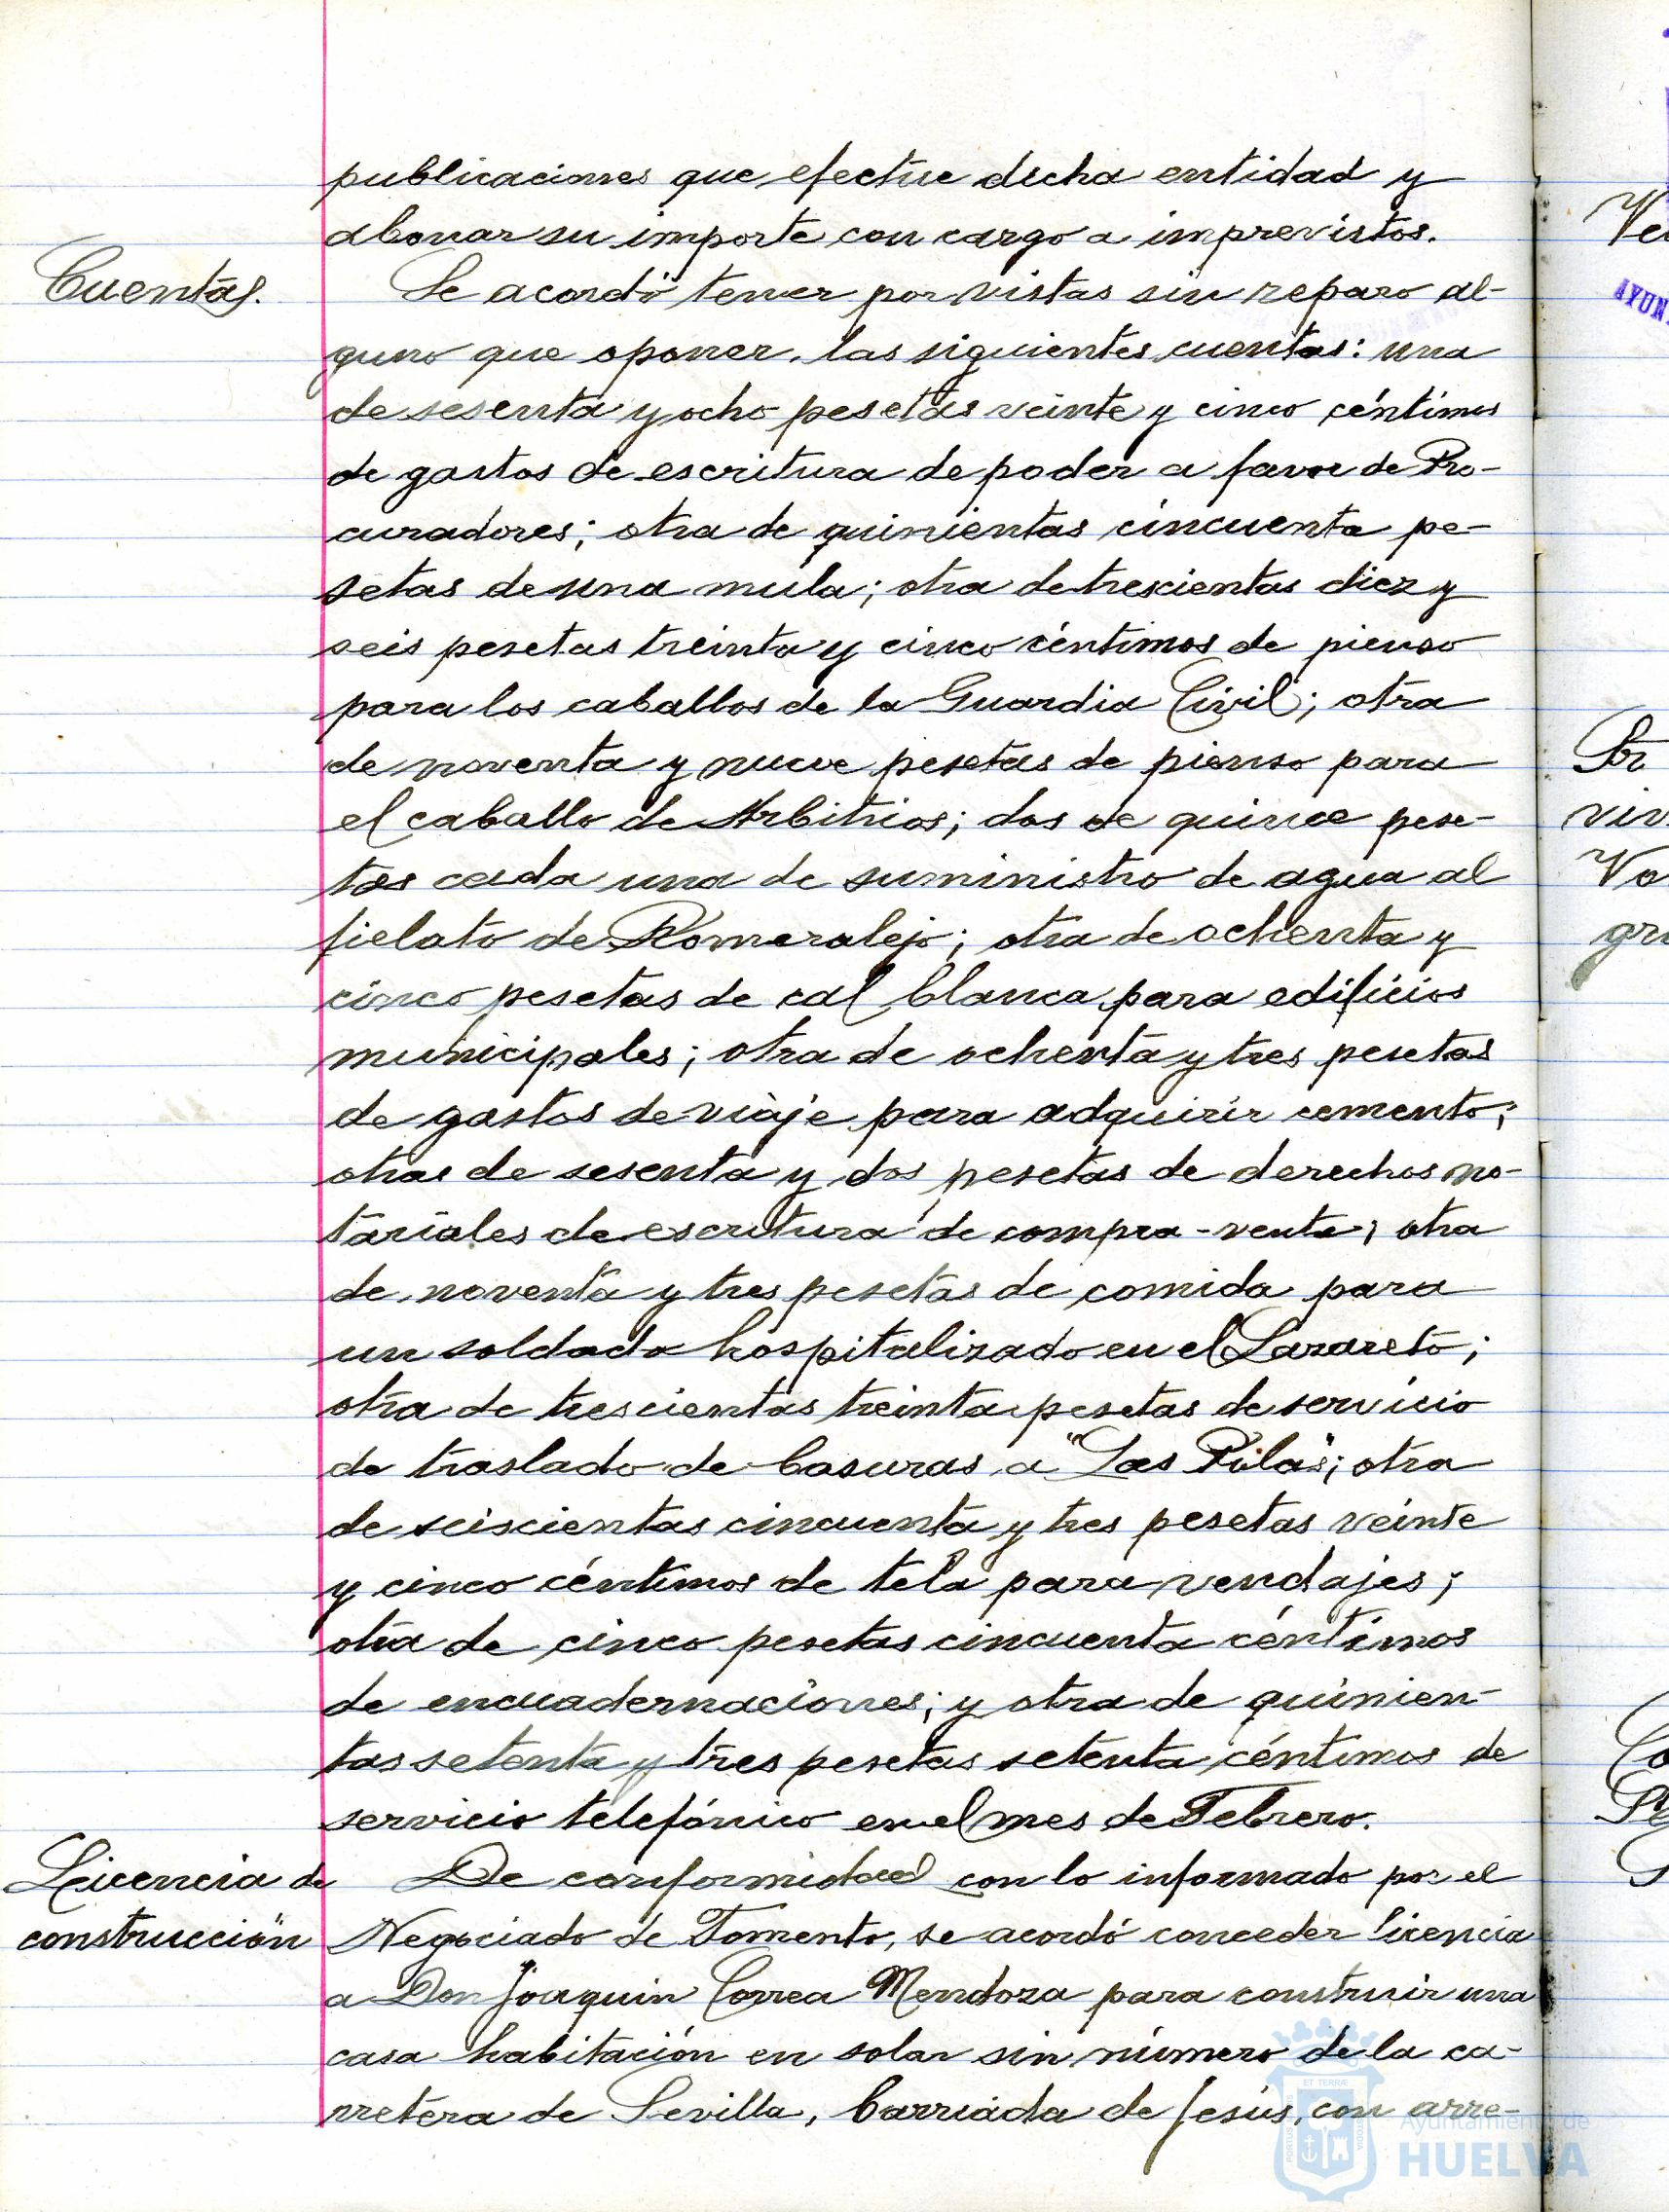 publicaciones que efectúe dicha entidad y
abonar su importe con cargo a imprevistos.
Cuentas.
Se acordó tener por vistas sin reparo al-
guno que oponer, las siguientes cuentas: una
de sesenta y ocho pesetas veinte y cinco céntimos
de gastos de escritura de poder a favor de Pro-
curadores; otra de quinientas cincuenta pe-
setas de una mula; otra de trescientas diez y
seis pesetas treinta y cinco céntimos de pienso
para los caballos de la Guardia Civil; otra
de noventa y nueve pesetas de pienso para
el caballo de Arbitrios; dos de quince pese-
tas cada una de suministro de agua al
fielato de Romeralejo; otra de ochenta y
cinco pesetas de cal blanca para edificios
municipales; otra de ochenta y tres pesetas
de gastos de viaje para adquirir cemento;
otras de sesenta y dos pesetas de derechos no-
tariales de escritura de compra-venta; otra
de noventa y tres pesetas de comida para
un soldado hospitalizado en el Lazareto;
otra de trescientas treinta pesetas de servicio
de traslado de basuras a "Las Pilas"; otra
de seiscientas cincuenta y tres pesetas veinte
y cinco céntimos de tela para vendajes;
otra de cinco pesetas cincuenta céntimos
de encuadernaciones; y otra de quinien-
tas setenta y tres pesetas setenta céntimos de
servicio telefónico en el mes de Febrero.
Licencia de
construcción
De conformidad con lo informado por el
Negociado de Fomento, se acordó conceder licencia
a Don Joaquin Correa Mendoza para construir una
casa habitación en solar sin número de la ca-
rretera de Sevilla, barriada de Jesús, con arre-
Ayuntamiento de
HUELVA